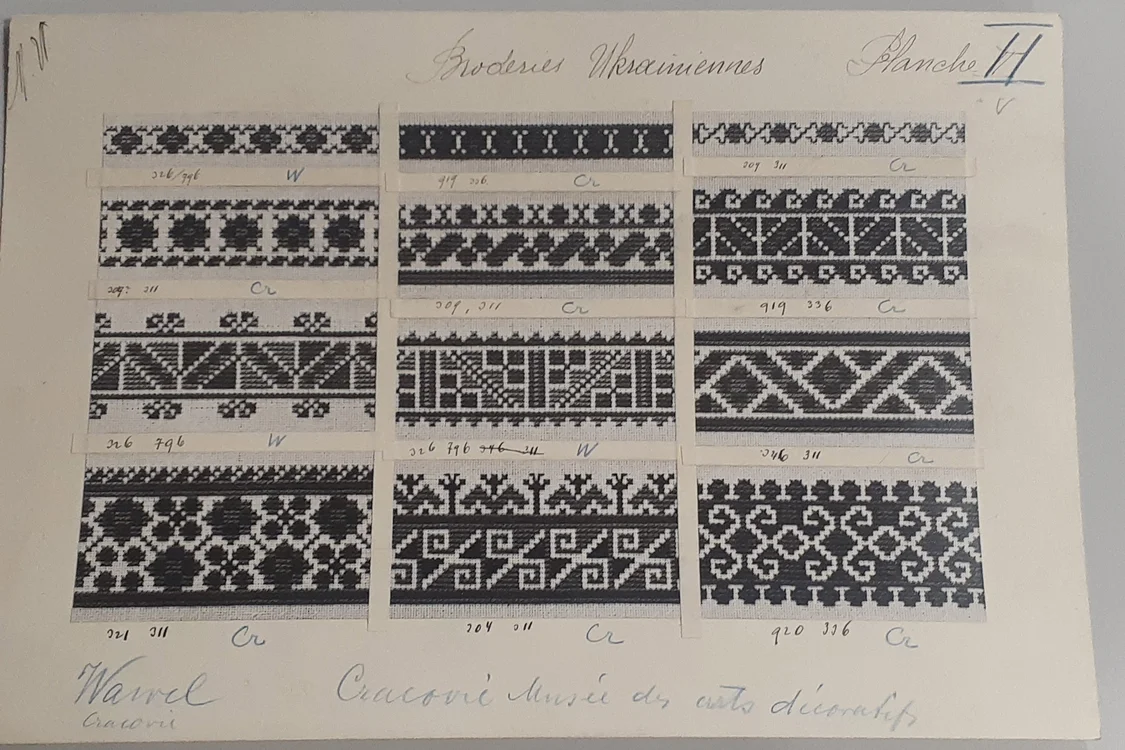 Broderies Ukrainiennes Planche II
326/796 W
919 336 Cr
309 311 Cr
309? 311 Cr
309, 311 Cr
919 336 Cr
326 796 W
326 796 346 311 W
346 311 Cr
321 311 Cr
304 311 Cr
920 336 Cr
Wawel
Cracovie
Cracovie Musée des arts décoratifs